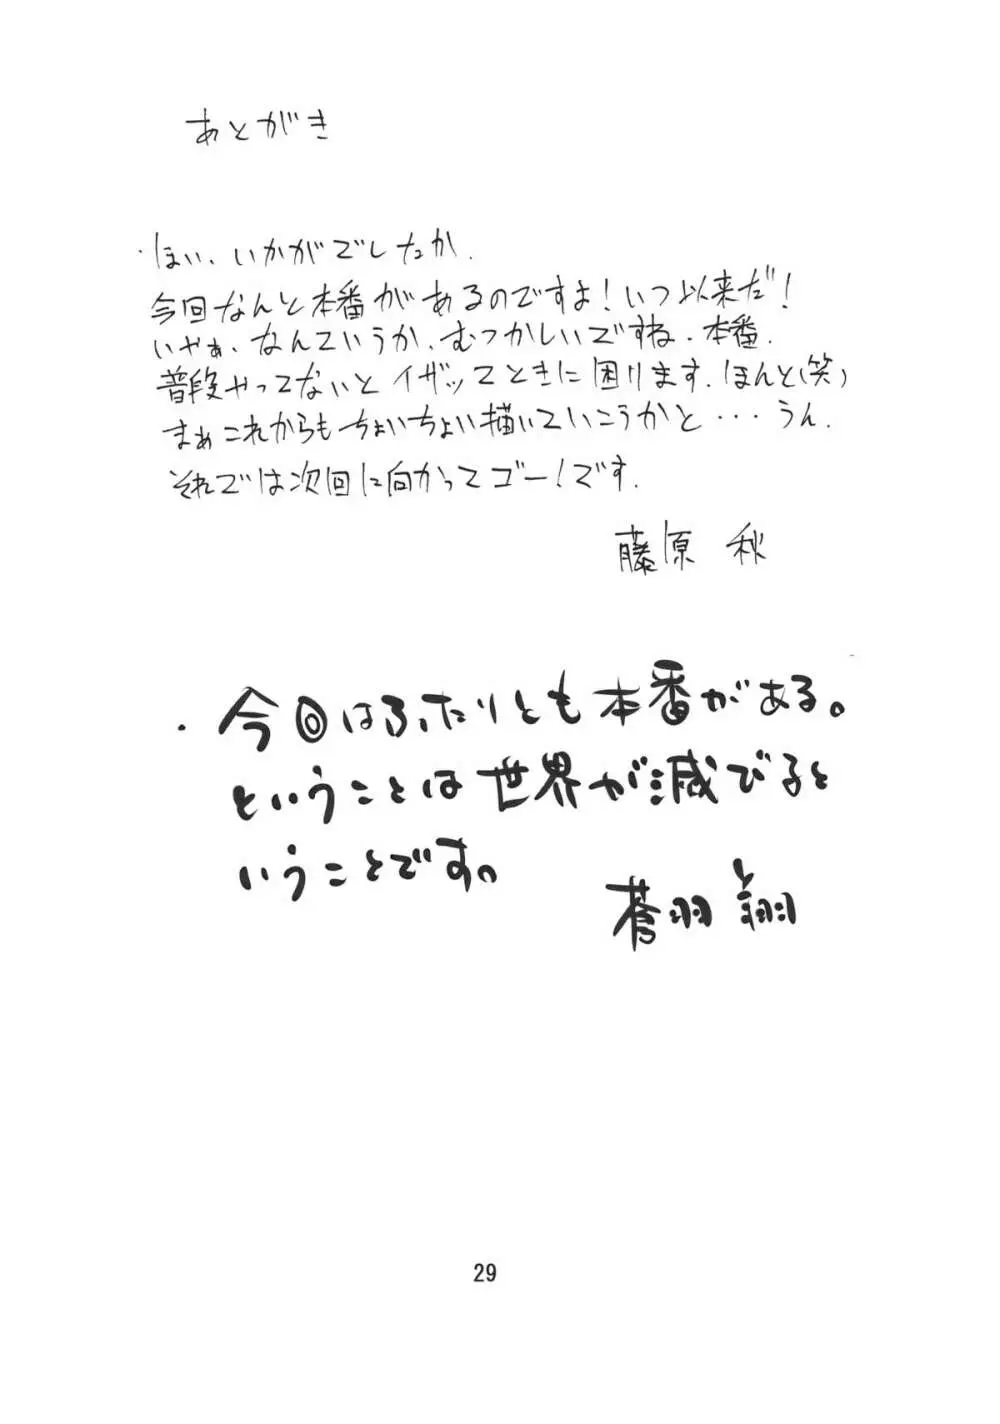 あとがき
・ほい、いかがでしたか。
今回なんと本番があるのですよ!いつ以来だ!
いやぁ、なんていうか、むつかしいですね。本番。
普段やってないとイザッてときに困ります。ほんと(笑)
まぁこれからもちょいちょい描いていこうかと・・・うん。
それでは次回に向かってゴー!です。
藤原 秋
・今回はふたりとも本番がある。
ということは世界が滅びると
いうことです。
蒼羽 翔
29